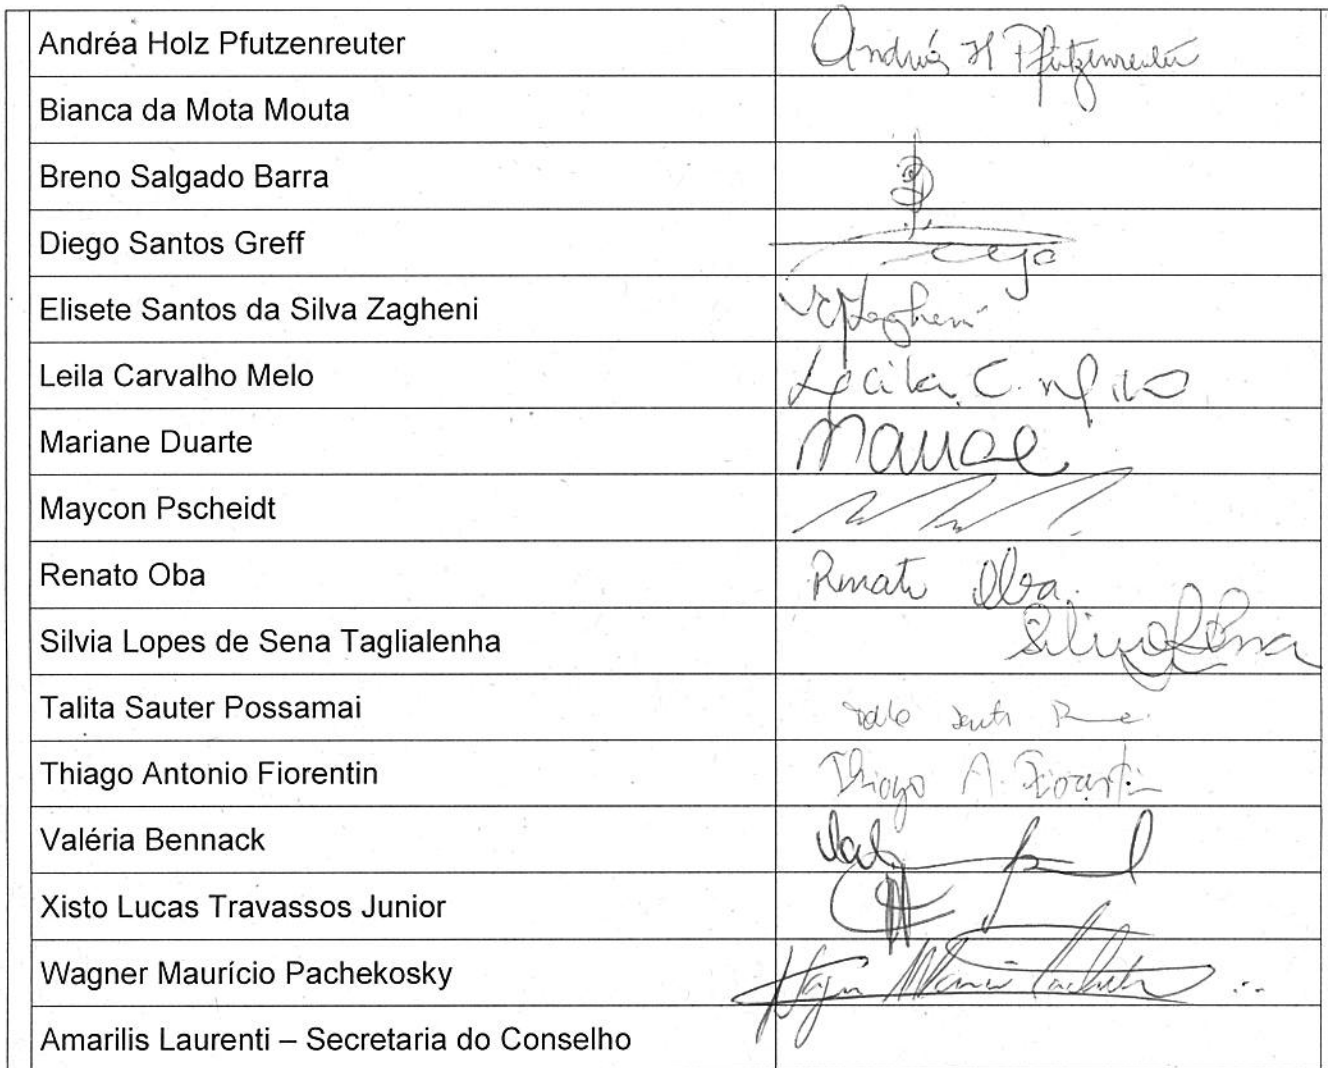 Andréa Holz Pfutzenreuter Andréa H Pfutzenreuter
Bianca da Mota Mouta
Breno Salgado Barra
Diego Santos Greff Diego
Elisete Santos da Silva Zagheni Zagheni
Leila Carvalho Melo Leila C. Melo
Mariane Duarte
Maycon Pscheidt
Renato Oba Renato Oba
Silvia Lopes de Sena Taglialenha Silvia L Sena
Talita Sauter Possamai
Thiago Antonio Fiorentin Thiago A. Fiorentin
Valéria Bennack
Xisto Lucas Travassos Junior
Wagner Maurício Pachekosky
Amarilis Laurenti – Secretaria do Conselho